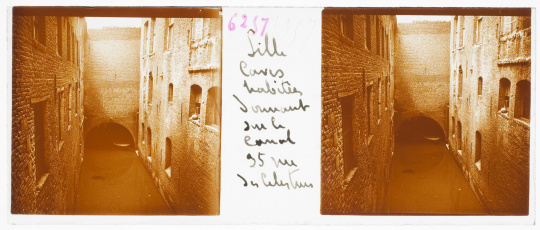 6237
Lille
Caves
habitées
Donnant
sur le
Canal
35 rue
des Celestines